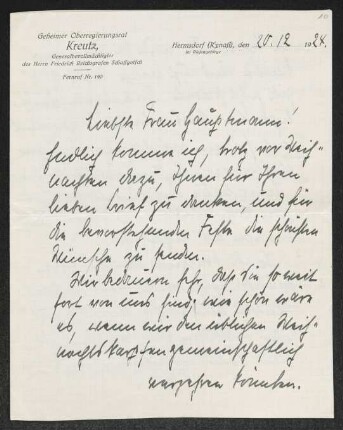 Geheimer Oberregierungsrat
Kreutz,
Generalbevollmächtigter
des Herrn Friedrich Reichsgrafen Schaffgotsch
Fernruf Nr. 190
Hermsdorf (Kynast), den 20.12 1924.
im Riesengebirge
Liebste Frau Hauptmann!
Endlich komme ich, trotz vor Weih-
nachten dazu, Ihnen für Ihren
lieben Brief zu danken, und für
die bevorstehenden Feste die schönsten
Wünsche zu senden.
Wir bedauern sehr, daß Sie so weit
fort von uns sind, wie schön wäre
es, wenn wir den üblichen Weih-
nachtskarpfen gemeinschaftlich
verzehren könnten.